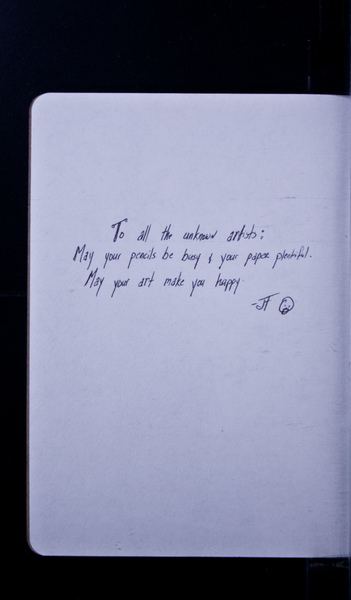 To all the unknown artists:
May your pencils be busy & your paper plentiful.
May your art make you happy.
-JT